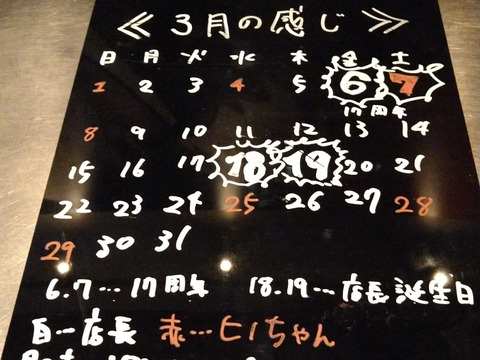 ≪3月の感じ≫
日 月 火 水 木 金 土
1 2 3 4 5 6 7
17周年
8 9 10 11 12 13 14
15 16 17 18 19 20 21
22 23 24 25 26 27 28
29 30 31
6.7…17周年 18.19…店長誕生日
白…店長 赤…ヒノちゃん